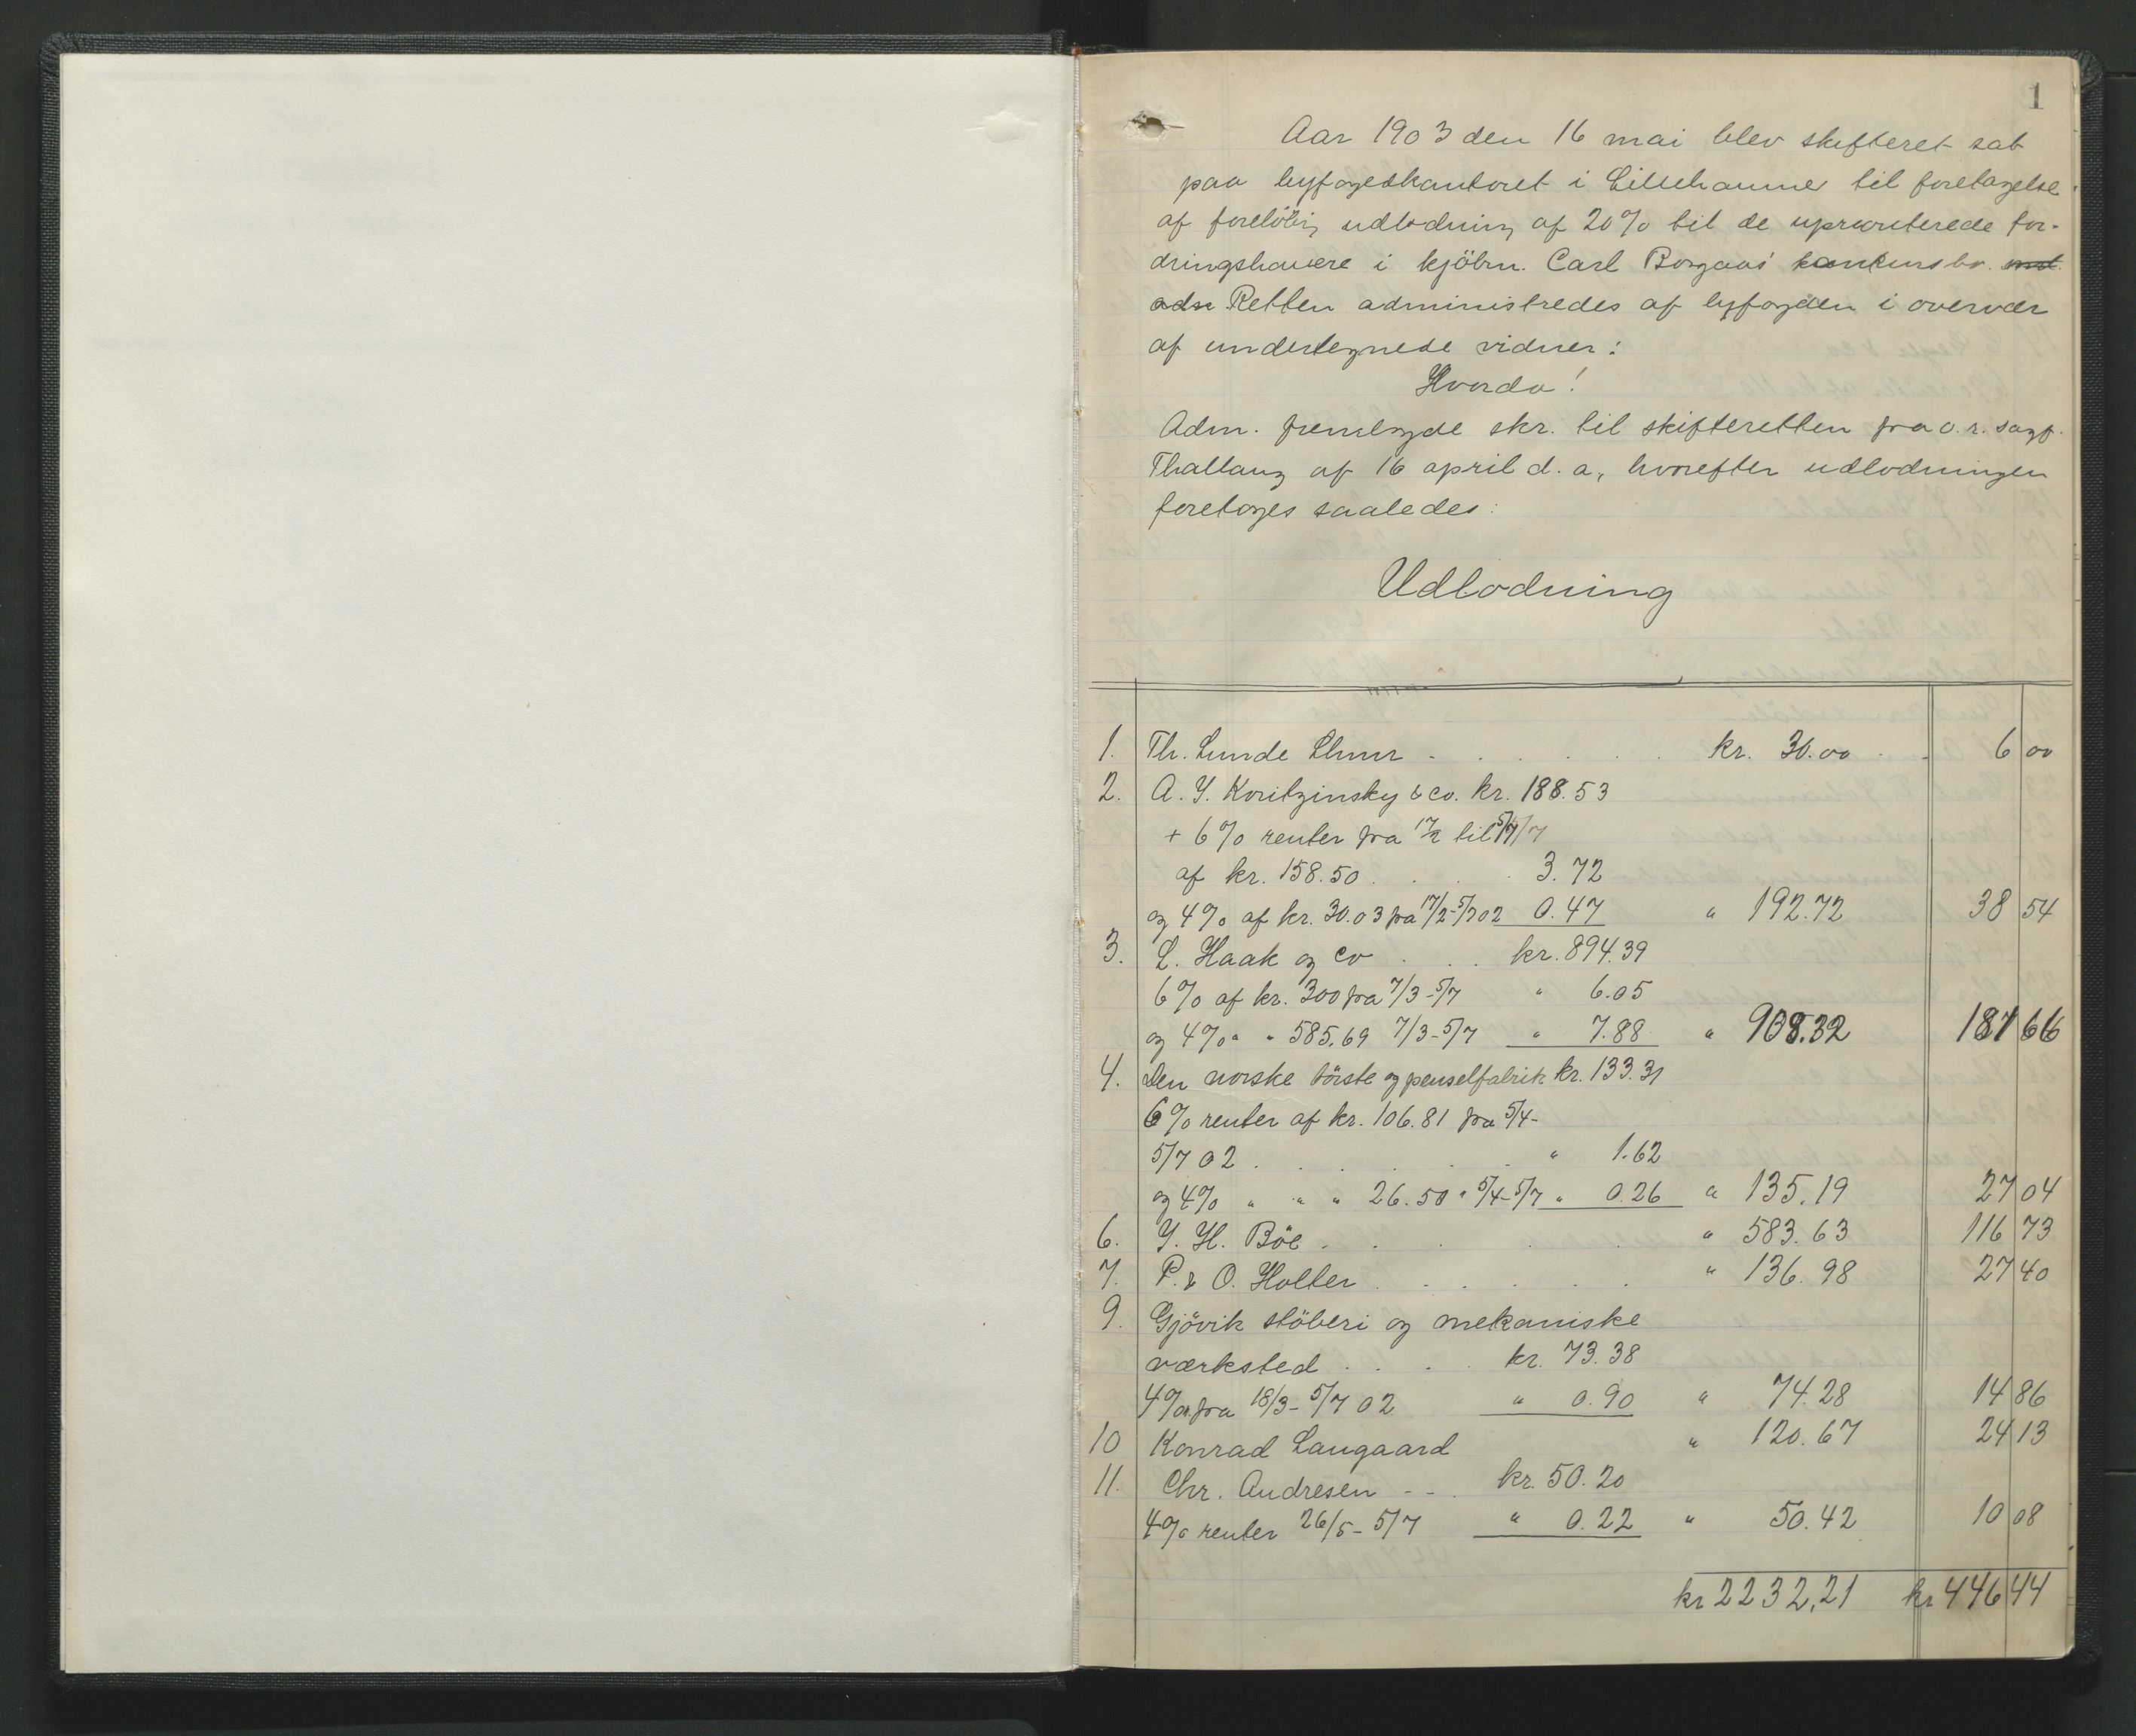 1
Aar 1903 den 16 mai blev skifteret sat
paa byfogedkontoret i Lillehammer til foretagelse
af foreløbig udlodning af 20% til de uprioriterede for-
dringshavere i kjöbm. Carl Borgaas' konkursbo.
Retten administredes af byfogden i overvær
af undertegnede vidner:
Hvorda!
Adm. fremlagde skr. til skifteretten fra o.r. sagf.
Thallaug af 16 april d. a., hvorefter udlodningen
foretages saaledes:
Udlodning
1. Th. Lunde Lhmr . . . . . . kr. 30.00 . . 6 00
2. A. Y. Koritzinsky & co. kr. 188.53
+ 6% renter fra 17/2 til 5/7
af kr. 158.50 . . . 3.72
og 4% af kr. 30.03 fra 17/2-5/7 02 0.47 " 192.72 38 54
3. L. Haak og co . . . kr. 894.39
6% af kr. 300 fra 7/3-5/7 " 6.05
og 4% " " 585.69 7/3-5/7 " 7.88 " 908.32 181 66
4. Den norske börste og penselfabrik kr. 133.31
6% renter af kr. 106.81 fra 5/4-
5/7 02 . . . . . " 1.62
og 4% " " " 26.50 " 5/4-5/7 " 0.26 " 135.19 27 04
6. Y. H. Böe . . . . . " 583.63 116 73
7. P. & O. Holter . . . . . " 136.98 27 40
9. Gjövik stöberi og mekaniske
værksted . . . . kr. 73.38
4% fra 18/3-5/7 02 " 0.90 " 74.28 14 86
10 Konrad Langaard " 120.67 24 13
11. Chr. Andresen - - . kr. 50.20
4% renter 26/5-5/7 " 0.22 " 50.42 10 08
kr 2232,21 kr 446 44